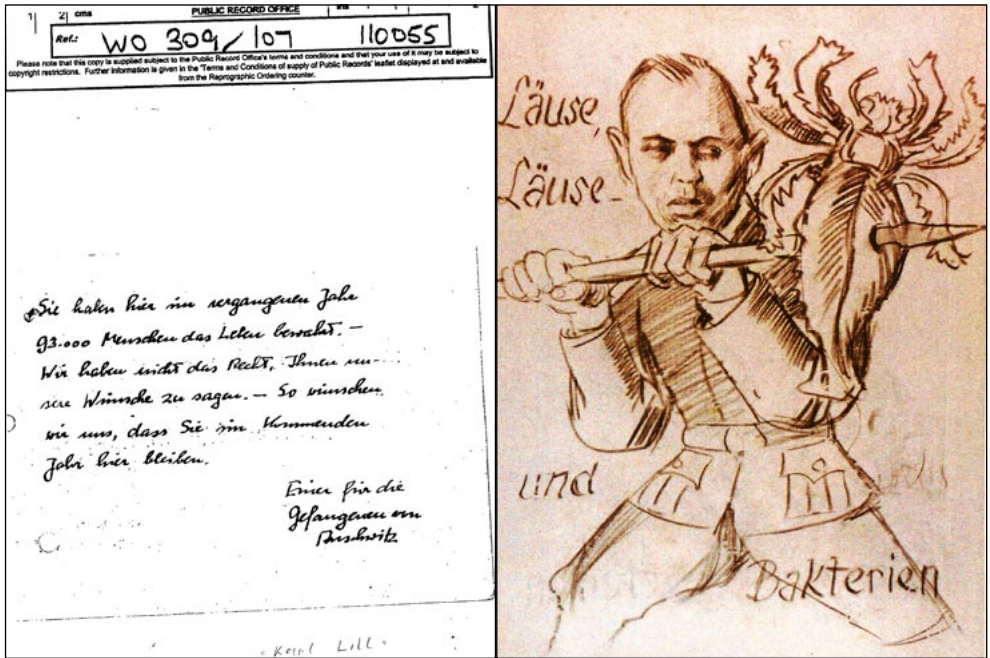 1 2 cms
PUBLIC RECORD OFFICE
ins 1
Ref.: WO 309/107 110055
Please note that this copy is supplied subject to the Public Record Office's terms and conditions and that your use of it may be subject to
copyright restrictions. Further information is given in the 'Terms and Conditions of supply of Public Records' leaflet displayed at and available
from the Reprographic Ordering counter.
Sie haben hier im vergangenen Jahr
93.000 Menschen das Leben bewahrt. –
Wir haben nicht das Recht, Ihnen un-
sere Wünsche zu sagen. – So wünschen
wir uns, dass Sie im kommenden
Jahr hier bleiben.
Einer für die
Gefangenen von
Auschwitz
Karl Lill.
Läuse,
Läuse-
und
Bakterien